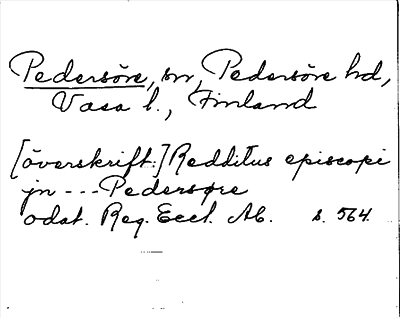 Pedersöre, sn, Pedersöre hd,
Vasa l., Finland
[överskrift:] Redditus episcopi
jn --- Pedersøre
odat. Reg. Eccl. Ab. s. 564.